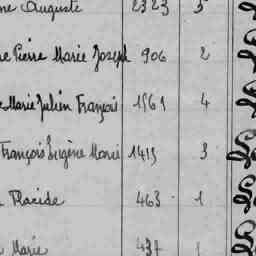 ne Auguste 2323 5
e Pierre Marie Joseph 906 2
e Marie Julien François 1561 4
François Eugène Marie 1415 3
Placide 463 1
Marie 437 1